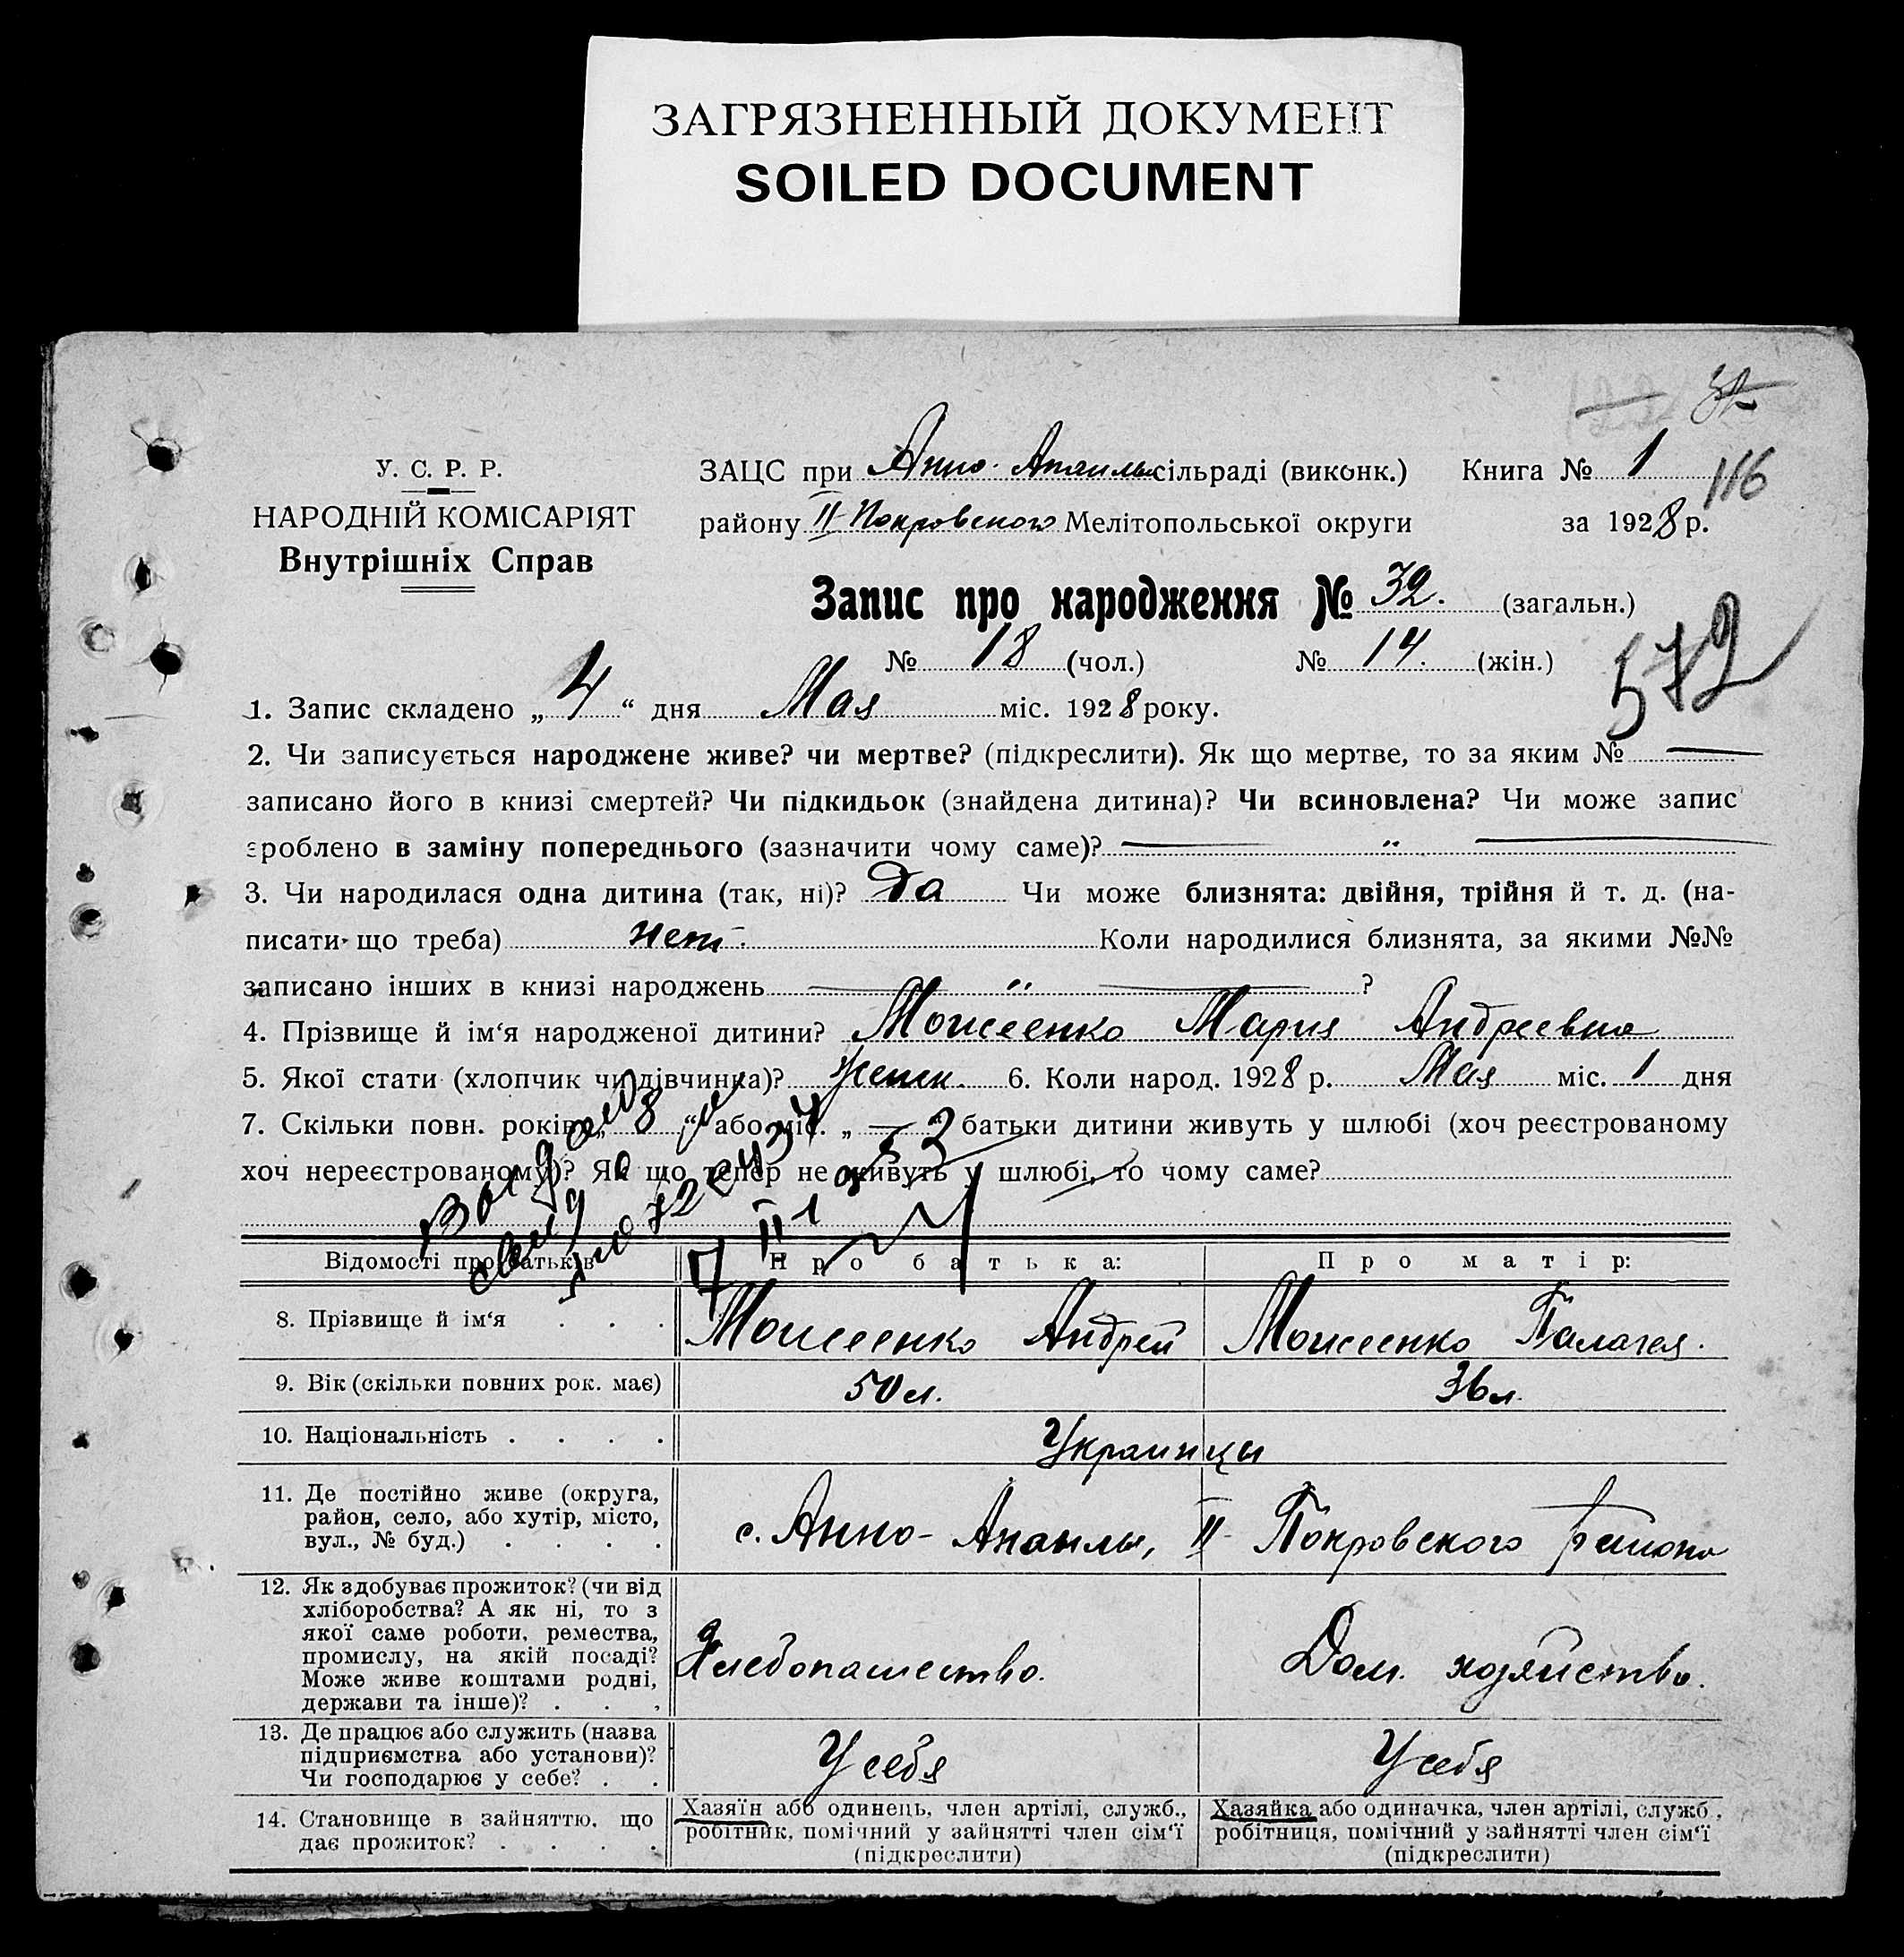 ЗАГРЯЗНЕННЫЙ ДОКУМЕНТ
SOILED DOCUMENT
У. С. Р. Р.
НАРОДНІЙ КОМІСАРІЯТ
Внутрішніх Справ
116
ЗАЦС при Анно-Апанлы сільраді (виконк.) Книга № 1
району II Покровского Мелітопольської округи за 1928 р.
Запис про народження № 32. (загальн.)
№ 18 (чол.) № 14. (жін.)
572
1. Запис складено „ 4 “ дня Мая міс. 1928 року.
2. Чи записується народжене живе? чи мертве? (підкреслити). Як що мертве, то за яким № —
записано його в книзі смертей? Чи підкидьок (знайдена дитина)? Чи всиновлена? Чи може запис
зроблено в заміну попереднього (зазначити чому саме)? — „ —
3. Чи народилася одна дитина (так, ні)? Да Чи може близнята: двійня, трійня й т. д. (на-
писати що треба) нет. Коли народилися близнята, за якими №№
записано інших в книзі народжень — „ — ?
4. Прізвище й ім‘я народженої дитини? Моисеенко Мария Андреевна
5. Якої стати (хлопчик чи дівчинка)? женск. 6. Коли народ. 1928 р. Мая міс. 1 дня
7. Скільки повн. років „ 8 “ або міс. „ — “ батьки дитини живуть у шлюбі (хоч реєстрованому
хоч нереєстрованому)? Як що тепер не живуть у шлюбі, то чому саме?
Відомості про батьків Про батька: Про матір:
8. Прізвище й ім‘я . . . Моисеенко Андрей Моисеенко Палагея.
9. Вік (скільки повних рок. має) 50 л. 36 л.
10. Національність . . . . Украинцы
11. Де постійно живе (округа,
район, село, або хутір, місто,
вул., № буд.) . . . .
с. Анно-Апанлы, II- Покровского района
12. Як здобуває прожиток? (чи від
хліборобства? А як ні, то з
якої саме роботи, ремества,
промислу, на якій посаді?
Може живе коштами родні,
держави та інше)? . . .
Хлебопашество. Дом. хозяйство.
13. Де працює або служить (назва
підприємства або установи)?
Чи господарює у себе? . .
У себя У себя
14. Становище в зайняттю, що
дає прожиток? . . . .
Хазяїн або одинець, член артілі, служб.,
робітник, помічний у зайнятті член сім‘ї
(підкреслити)
Хазяйка або одиначка, член артілі, служб.,
робітниця, помічний у зайнятті член сім‘ї
(підкреслити)